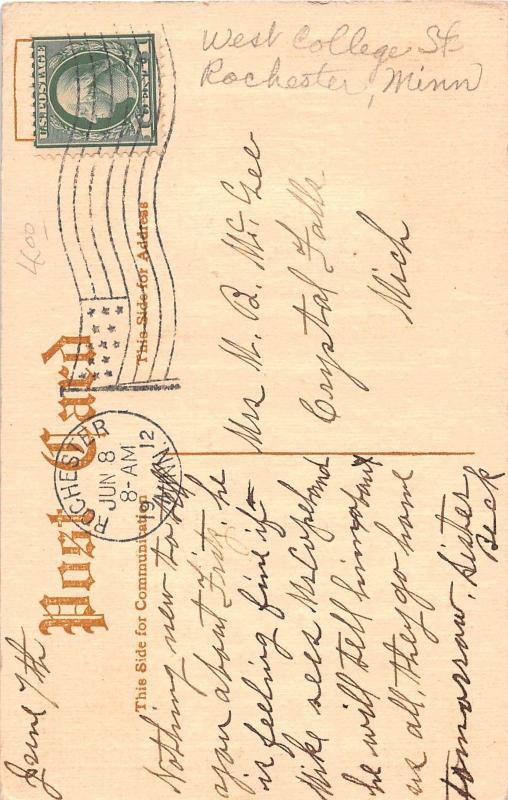 West College St
Rochester, Minn
U.S. POSTAGE
1 CENT 1
4.00
Post Card
ROCHESTER
JUN 8
8-AM
1912
MINN.
This Side for Communication
This Side for Address
June 7th
Nothing new to tell
you about Fritz, he
is feeling fine if
Mike sees Mr Copeland
he will tell him about
us all, they go home
tomorrow, Sister
Beck
Mrs N. B. Mc. Gee
Crystal Falls
Mich